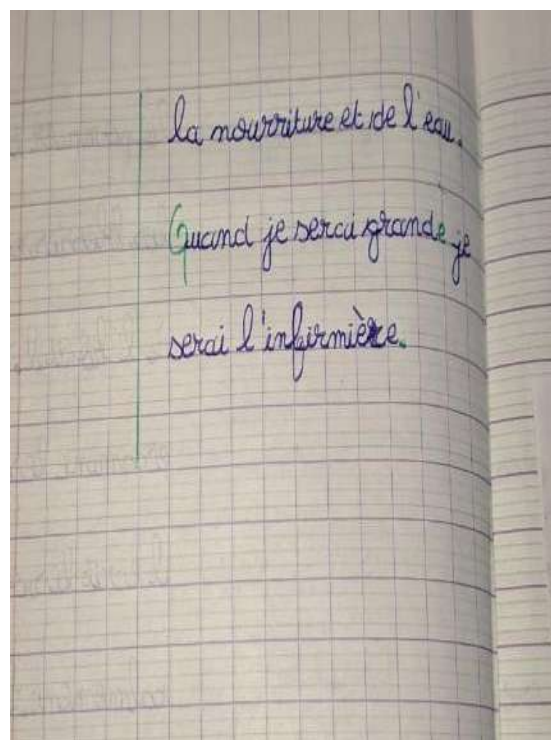 la nourriture et de l'eau.
Quand je serai grande je
serai l'infirmière.